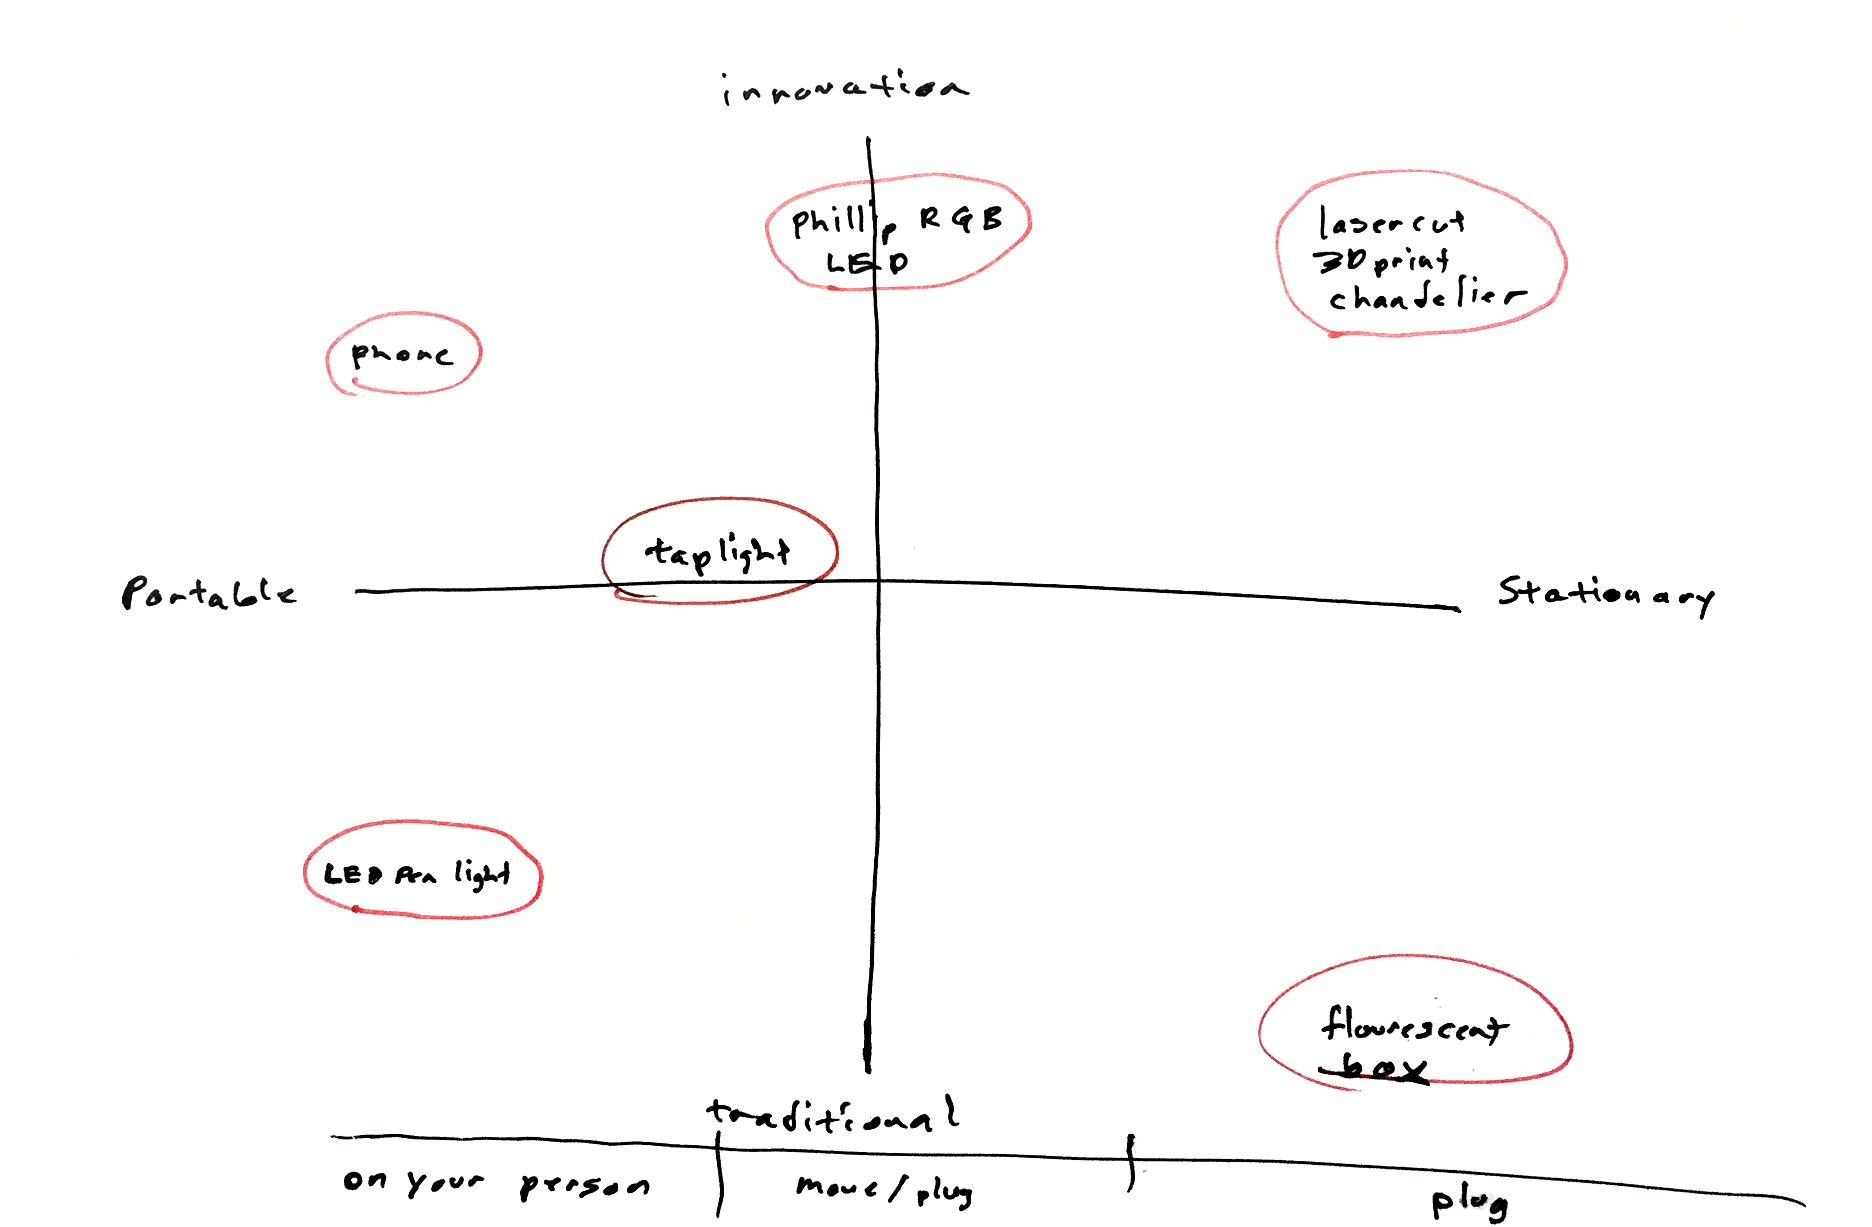 innovation
phillip RGB
LED
lasercut
3D print
chandelier
phone
taplight
Portable
Stationary
LED Pen light
flourescent
box
traditional
on your person
move/plug
plug